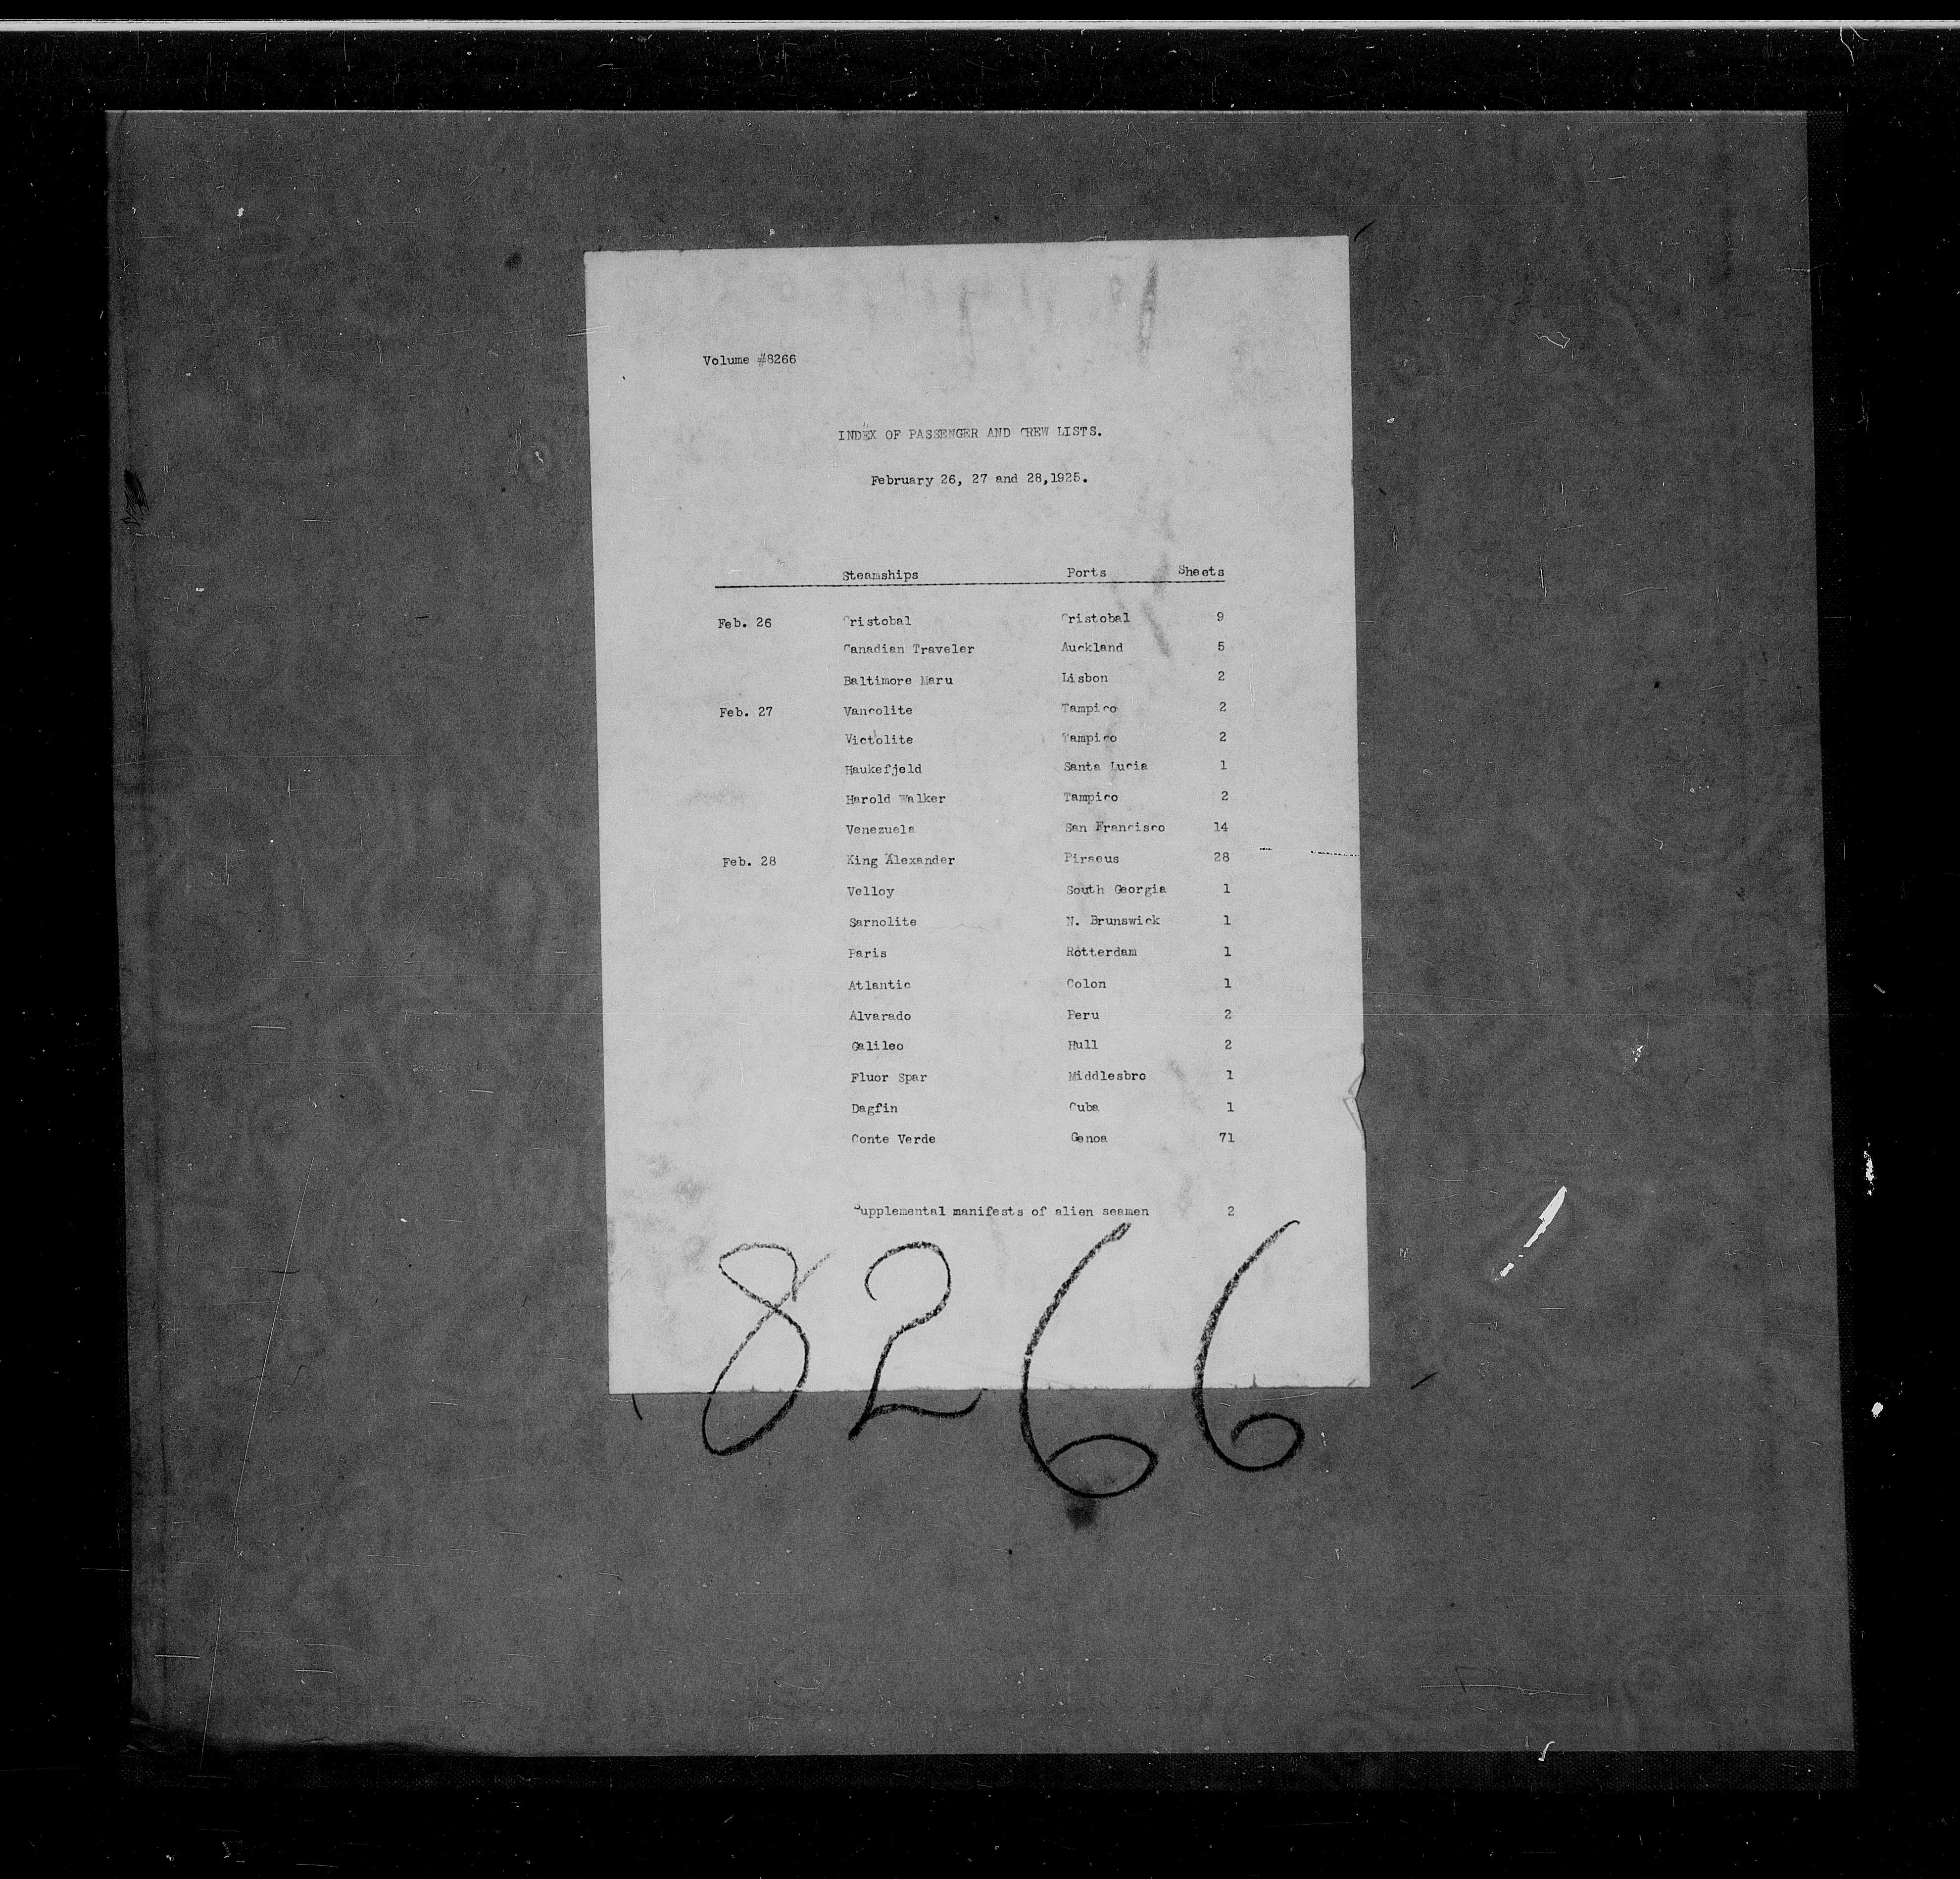 Volume #8266
INDEX OF PASSENGER AND CREW LISTS.
February 26, 27 and 28,1925.
Steamships Ports Sheets
Feb. 26 Cristobal Cristobal 9
Canadian Traveler Auckland 5
Baltimore Maru Lisbon 2
Feb. 27 Vancolite Tampico 2
Victolite Tampico 2
Haukefjeld Santa Lucia 1
Harold Walker Tampico 2
Venezuela San Francisco 14
Feb. 28 King Alexander Piraeus 28
Velloy South Georgia 1
Sarnolite N. Brunswick 1
Paris Rotterdam 1
Atlantic Colon 1
Alvarado Peru 2
Galileo Hull 2
Fluor Spar Middlesbro 1
Dagfin Cuba 1
Conte Verde Genoa 71
Supplemental manifests of alien seamen 2
8266